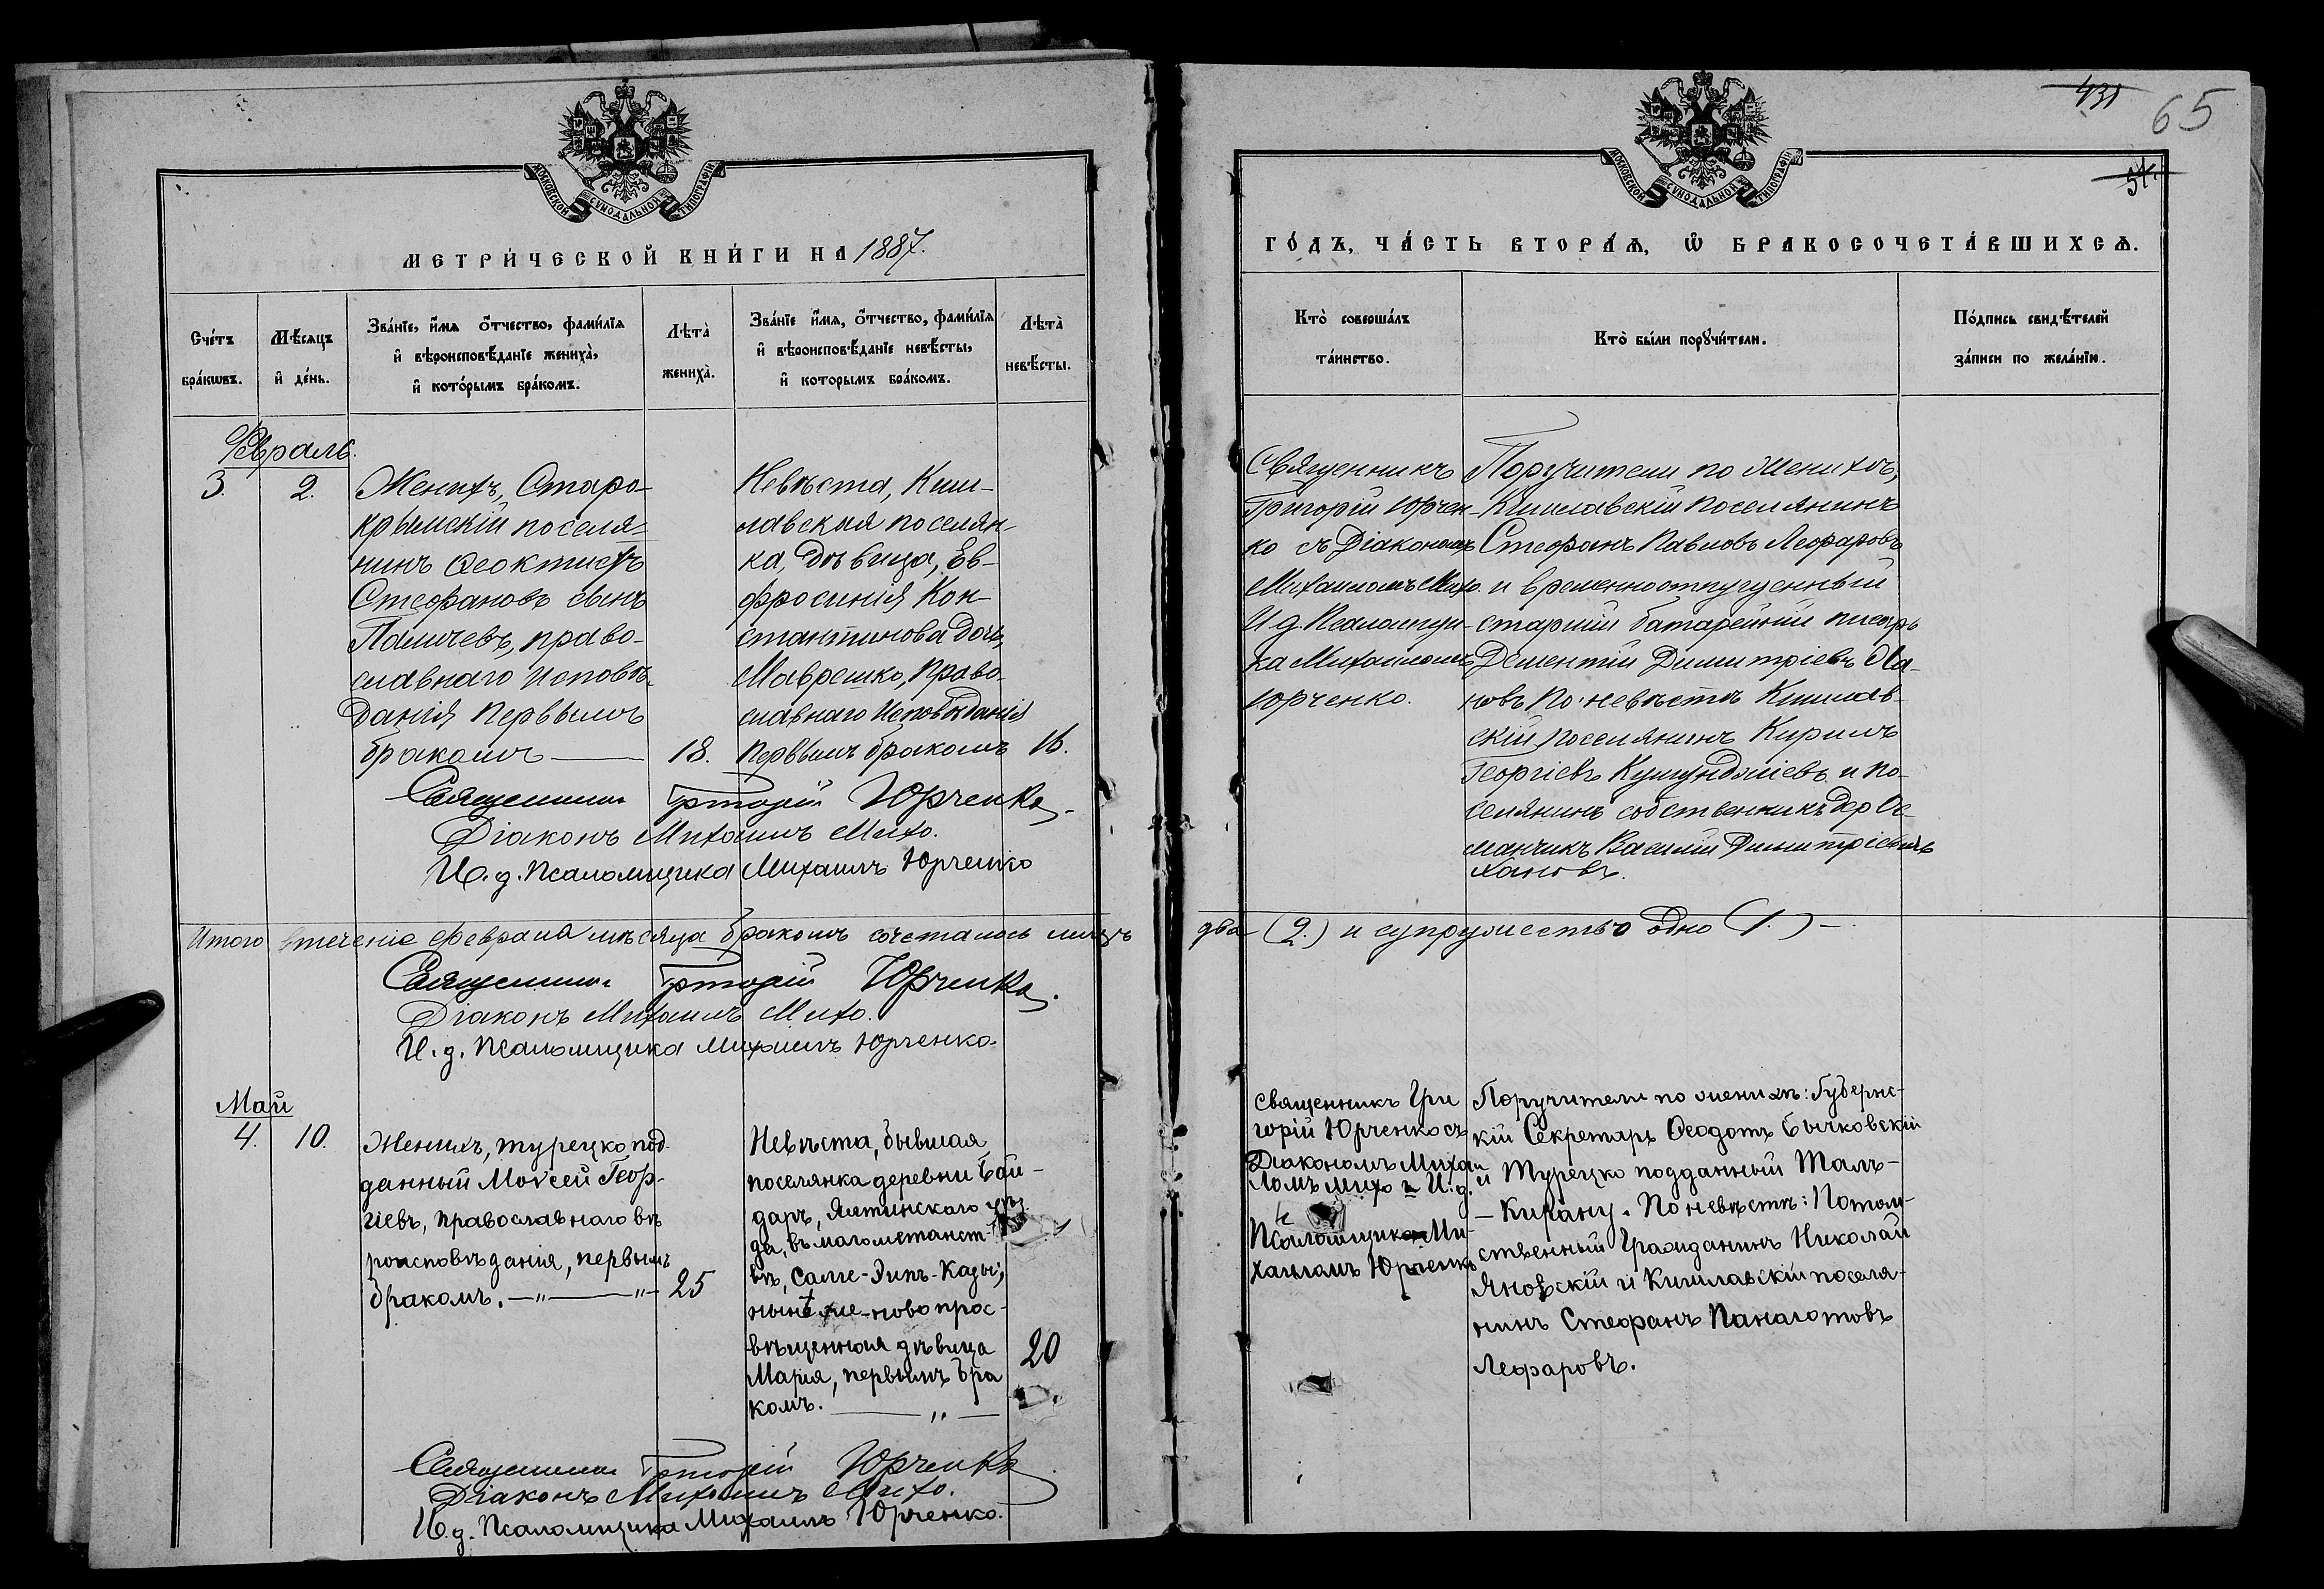 МОСКОВСКОЙ СѴНОДАЛЬНОЙ ТИПОГРАФІИ
МЕТРИ́ЧЕСКОЙ КНИ́ГИ НА 1887.
Сче́тъ бра́кωвъ.
Мѣ́сяцъ и҆ де́нь.
Зва́нїе, и҆́мѧ ѻ҆́тчество, фами́лїѧ
и҆ вѣроисповѣ́данїе жениха̀,
и҆ кото́рымъ бра́комъ.
Лѣта̀ жениха̀.
Зва́нїе и҆́мѧ, ѻ҆́тчество, фами́лїѧ
и҆ вѣроисповѣ́данїе невѣ́сты,
и҆ которымъ бра́комъ.
Лѣта̀ невѣ́сты.
Февраль.
3.
2.
Женихъ, Старо-
крымскій поселя-
нинъ Ѳеоктистъ
Стефановъ сынъ
Паличевъ, право-
славнаго исповѣ-
данія первымъ
бракомъ
18.
Невѣста, Киш-
лавская поселян-
ка, дѣвица, Ев-
фросинія Кон-
стантинова дочь,
Маврешко, право-
славнаго исповѣданія
первымъ бракомъ
16.
Священникъ Григорій Юрченко.
Діаконъ Михаилъ Михо.
И.д. Псаломщика Михаилъ Юрченко
Итого втеченіе февраля мѣсяца бракомъ сочеталось лицъ
Священникъ Григорій Юрченко.
Діаконъ Михаилъ Михо.
И.д. Псаломщика Михаилъ Юрченко.
Май
4.
10.
Женихъ, турецко под-
данный Моѵсей Геор-
гіевъ, православнаго вѣ
роисповѣданія, первымъ
бракомъ. —„——„—
25
Невѣста, бывшая
поселянка деревни Бай-
даръ, Ялтинскаго уѣз
да, въ магометанст-
вѣ, Салге-Эипъ-Кады;
нынѣ же-ново прос-
вѣщенная дѣвица
Марія, первымъ бра
комъ. ——„—
20
Священникъ Григорій Юрченко
Діаконъ Михаилъ Михо.
И.д. Псаломщика Михаилъ Юрченко.
431
65
54.
МОСКОВСКОЙ СѴНОДАЛЬНОЙ ТИПОГРАФІИ
ГО́ДЪ, ЧА́СТЬ ВТОРА́Ѧ, Ѿ БРАКОСОЧЕТА́ВШИХСѦ.
Кто̀ соверша́лъ
та́инство.
Кто̀ бы́ли порꙋчи́тели.
По́дпись свидѣ́телей
за́писи по жела́нїю.
Священникъ
Григорій Юрчен-
ко съ Діакономъ
Михаиломъ Михо.
И д. Псаломщи-
ка Михаиломъ
Юрченко.
Поручители по женихѣ,
Кишлавскій поселянинъ
Стефанъ Павловъ Лефаровъ
и временноотпущенный
старшій батарейный писарь
Дементій Димитріевъ Ха-
новъ по невѣстѣ Кишлав-
скій поселянинъ Кирилъ
Георгіевъ Кушундоліевъ и по-
селянинъ собственникъ дер Ос-
манчикъ Василій Димитріевичъ
Хановъ.
два (2.) и супружество одно (1.) —
Священникъ Гри
горій Юрченко съ
Діакономъ Михаи
ломъ Михо и И.д.
Псаломщика Ми-
хаиломъ Юрченко
Поручители по женихѣ: Губернс-
кій Секретарь Ѳеодотъ Бычковскій
и Турецко подданный Талъ-
—Киріану. По невѣстѣ: Потом-
ственный Гражданинъ Николай
Яновскій и Кишлавскій поселя-
нинъ Стефанъ Панаіотовъ
Лефаровъ.